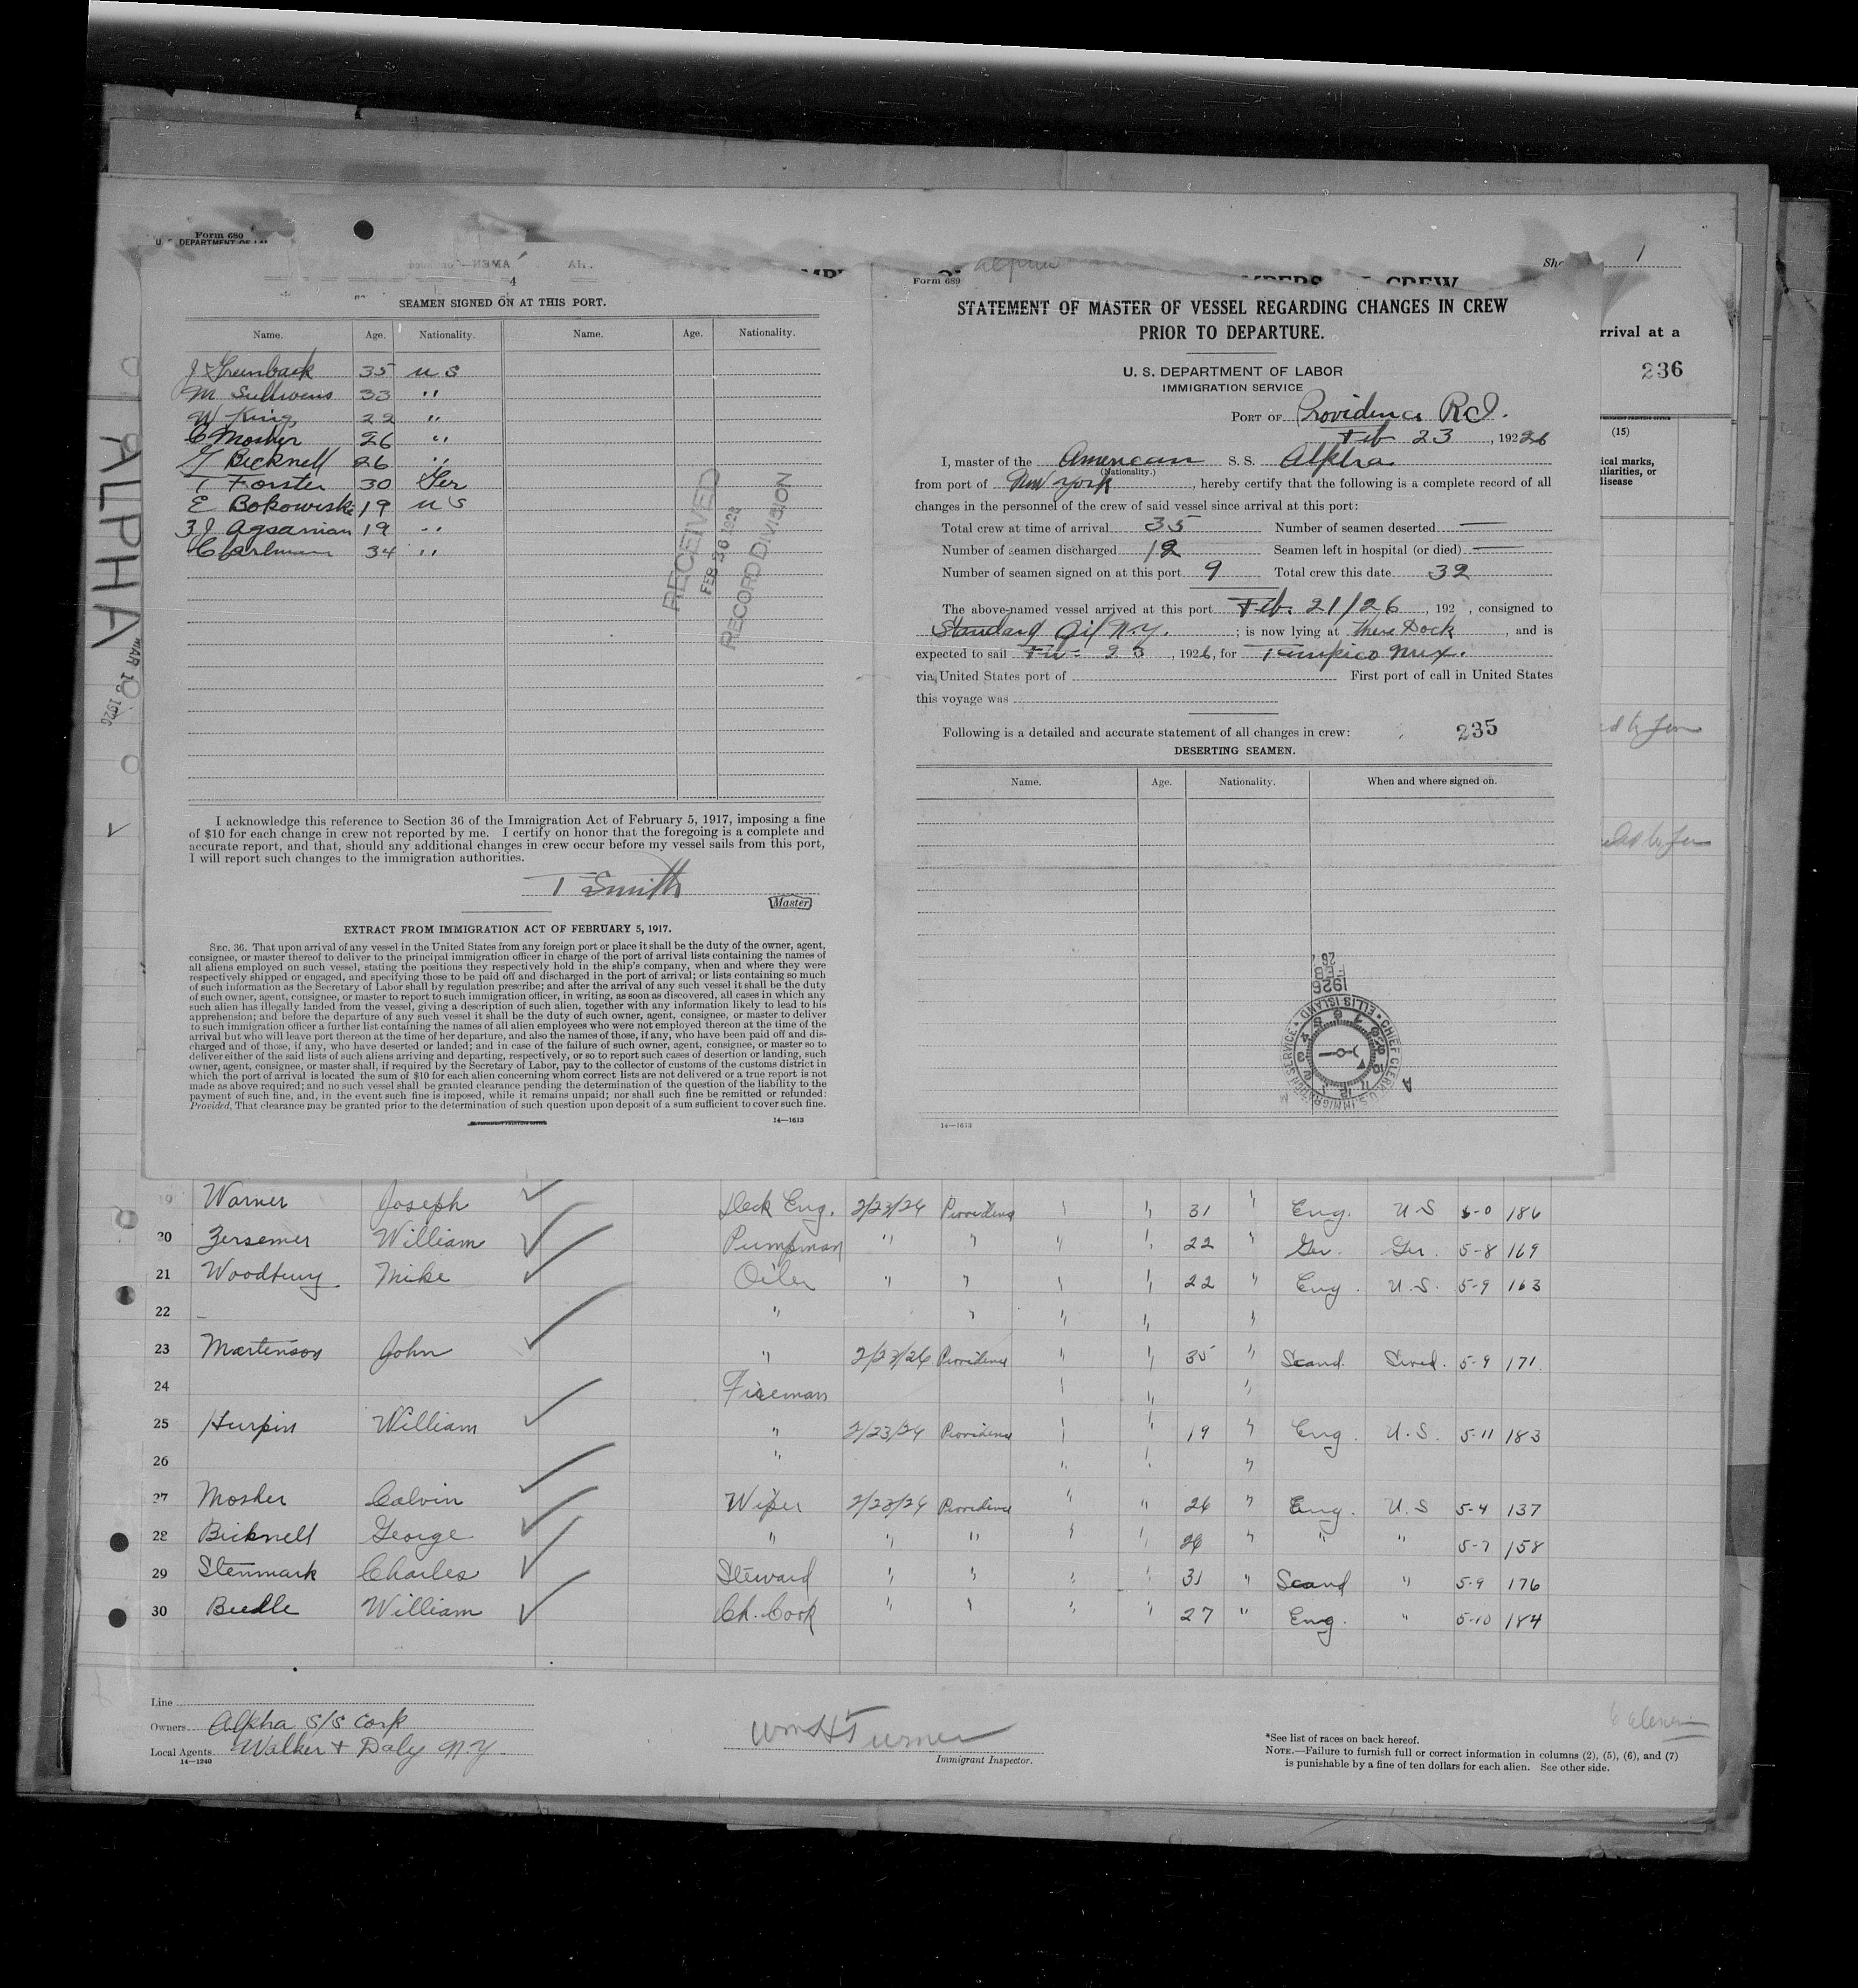 Form 680
U. S. DEPARTMENT OF LA
4
SEAMEN SIGNED ON AT THIS PORT.
Name. Age. Nationality. Name. Age. Nationality.
J Greenback 35 U S
M Sullivens 33 "
W King 22 "
C Mosher 26 "
G Bicknell 26 "
T Forster 30 Ger
E Bokowiski 19 U S
19 "
34 "
RECEIVED
FEB 26 1926
RECORD DIVISION
I acknowledge this reference to Section 36 of the Immigration Act of February 5, 1917, imposing a fine
of $10 for each change in crew not reported by me. I certify on honor that the foregoing is a complete and
accurate report, and that, should any additional changes in crew occur before my vessel sails from this port,
I will report such changes to the immigration authorities.
T Smith
Master
EXTRACT FROM IMMIGRATION ACT OF FEBRUARY 5, 1917.
SEC. 36. That upon arrival of any vessel in the United States from any foreign port or place it shall be the duty of the owner, agent,
consignee, or master thereof to deliver to the principal immigration officer in charge of the port of arrival lists containing the names of
all aliens employed on such vessel, stating the positions they respectively hold in the ship's company, when and where they were
respectively shipped or engaged, and specifying those to be paid off and discharged in the port of arrival; or lists containing so much
of such information as the Secretary of Labor shall by regulation prescribe; and after the arrival of any such vessel it shall be the duty
of such owner, agent, consignee, or master to report to such immigration officer, in writing, as soon as discovered, all cases in which any
such alien has illegally landed from the vessel, giving a description of such alien, together with any information likely to lead to his
apprehension; and before the departure of any such vessel it shall be the duty of such owner, agent, consignee, or master to deliver
to such immigration officer a further list containing the names of all alien employees who were not employed thereon at the time of the
arrival but who will leave port thereon at the time of her departure, and also the names of those, if any, who have been paid off and dis-
charged and of those, if any, who have deserted or landed; and in case of the failure of such owner, agent, consignee, or master so to
deliver either of the said lists of such aliens arriving and departing, respectively, or so to report such cases of desertion or landing, such
owner, agent, consignee, or master shall, if required by the Secretary of Labor, pay to the collector of customs of the customs district in
which the port of arrival is located the sum of $10 for each alien concerning whom correct lists are not delivered or a true report is not
made as above required; and no such vessel shall be granted clearance pending the determination of the question of the liability to the
payment of such fine, and, in the event such fine is imposed, while it remains unpaid; nor shall such fine be remitted or refunded:
Provided, That clearance may be granted prior to the determination of such question upon deposit of a sum sufficient to cover such fine.
14—1613
ALPHA
MAR 16 1926
Alpha
Form 689
STATEMENT OF MASTER OF VESSEL REGARDING CHANGES IN CREW
PRIOR TO DEPARTURE.
U. S. DEPARTMENT OF LABOR
IMMIGRATION SERVICE
PORT OF Providence R.I.
Feb 23, 1926
I, master of the American S. S. Alpha
(Nationality.)
from port of New York, hereby certify that the following is a complete record of all
changes in the personnel of the crew of said vessel since arrival at this port:
Total crew at time of arrival 35 Number of seamen deserted —
Number of seamen discharged 12 Seamen left in hospital (or died) —
Number of seamen signed on at this port 9 Total crew this date 32
The above-named vessel arrived at this port Feb. 21/26, 192 , consigned to
Standard Oil N.Y. ; is now lying at there Dock, and is
expected to sail Feb - 23, 1926, for Tampico Mex.
via United States port of First port of call in United States
this voyage was
Following is a detailed and accurate statement of all changes in crew: 235
DESERTING SEAMEN.
Name. Age. Nationality. When and where signed on.
1926
FEB
26
CHIEF CLERK U.S. IMMIGRATION SERVICE ELLIS ISLAND
14—1613
1
rrival at a
236
(15)
ical marks,
liarities, or
disease
Warner Joseph Deck Eng. 2/23/26 Providence " " 31 " Eng. U S 6-0 186
20 Zersemer William Pumpman " " " " 22 " Ger. Ger. 5-8 169
21 Woodbury Mike Oiler " " " " 22 " Eng. U.S. 5-9 163
22 " " " " "
23 Martenson John " 2/23/26 Providence " " 35 " Scand. Swed. 5-9 171
24 Fireman " " "
25 Hurpin William " 2/23/26 Providence " " 19 " Eng. U.S. 5-11 183
26 " " " "
27 Mosher Calvin Wiper 2/23/26 Providence " " 26 " Eng. U.S 5-4 137
28 Bicknell George " " " " " 26 " " " 5-7 158
29 Stenmark Charles Steward " " " " 31 " Scand " 5-9 176
30 Beedle William Ch. Cook " " " " 27 " Eng. " 5-10 184
Line
Owners Alpha S/S Corp
Local Agents Walker & Daly N.Y.
14—1240
Wm H Turner
Immigrant Inspector.
6 aliens
*See list of races on back hereof.
NOTE.—Failure to furnish full or correct information in columns (2), (5), (6), and (7)
is punishable by a fine of ten dollars for each alien. See other side.